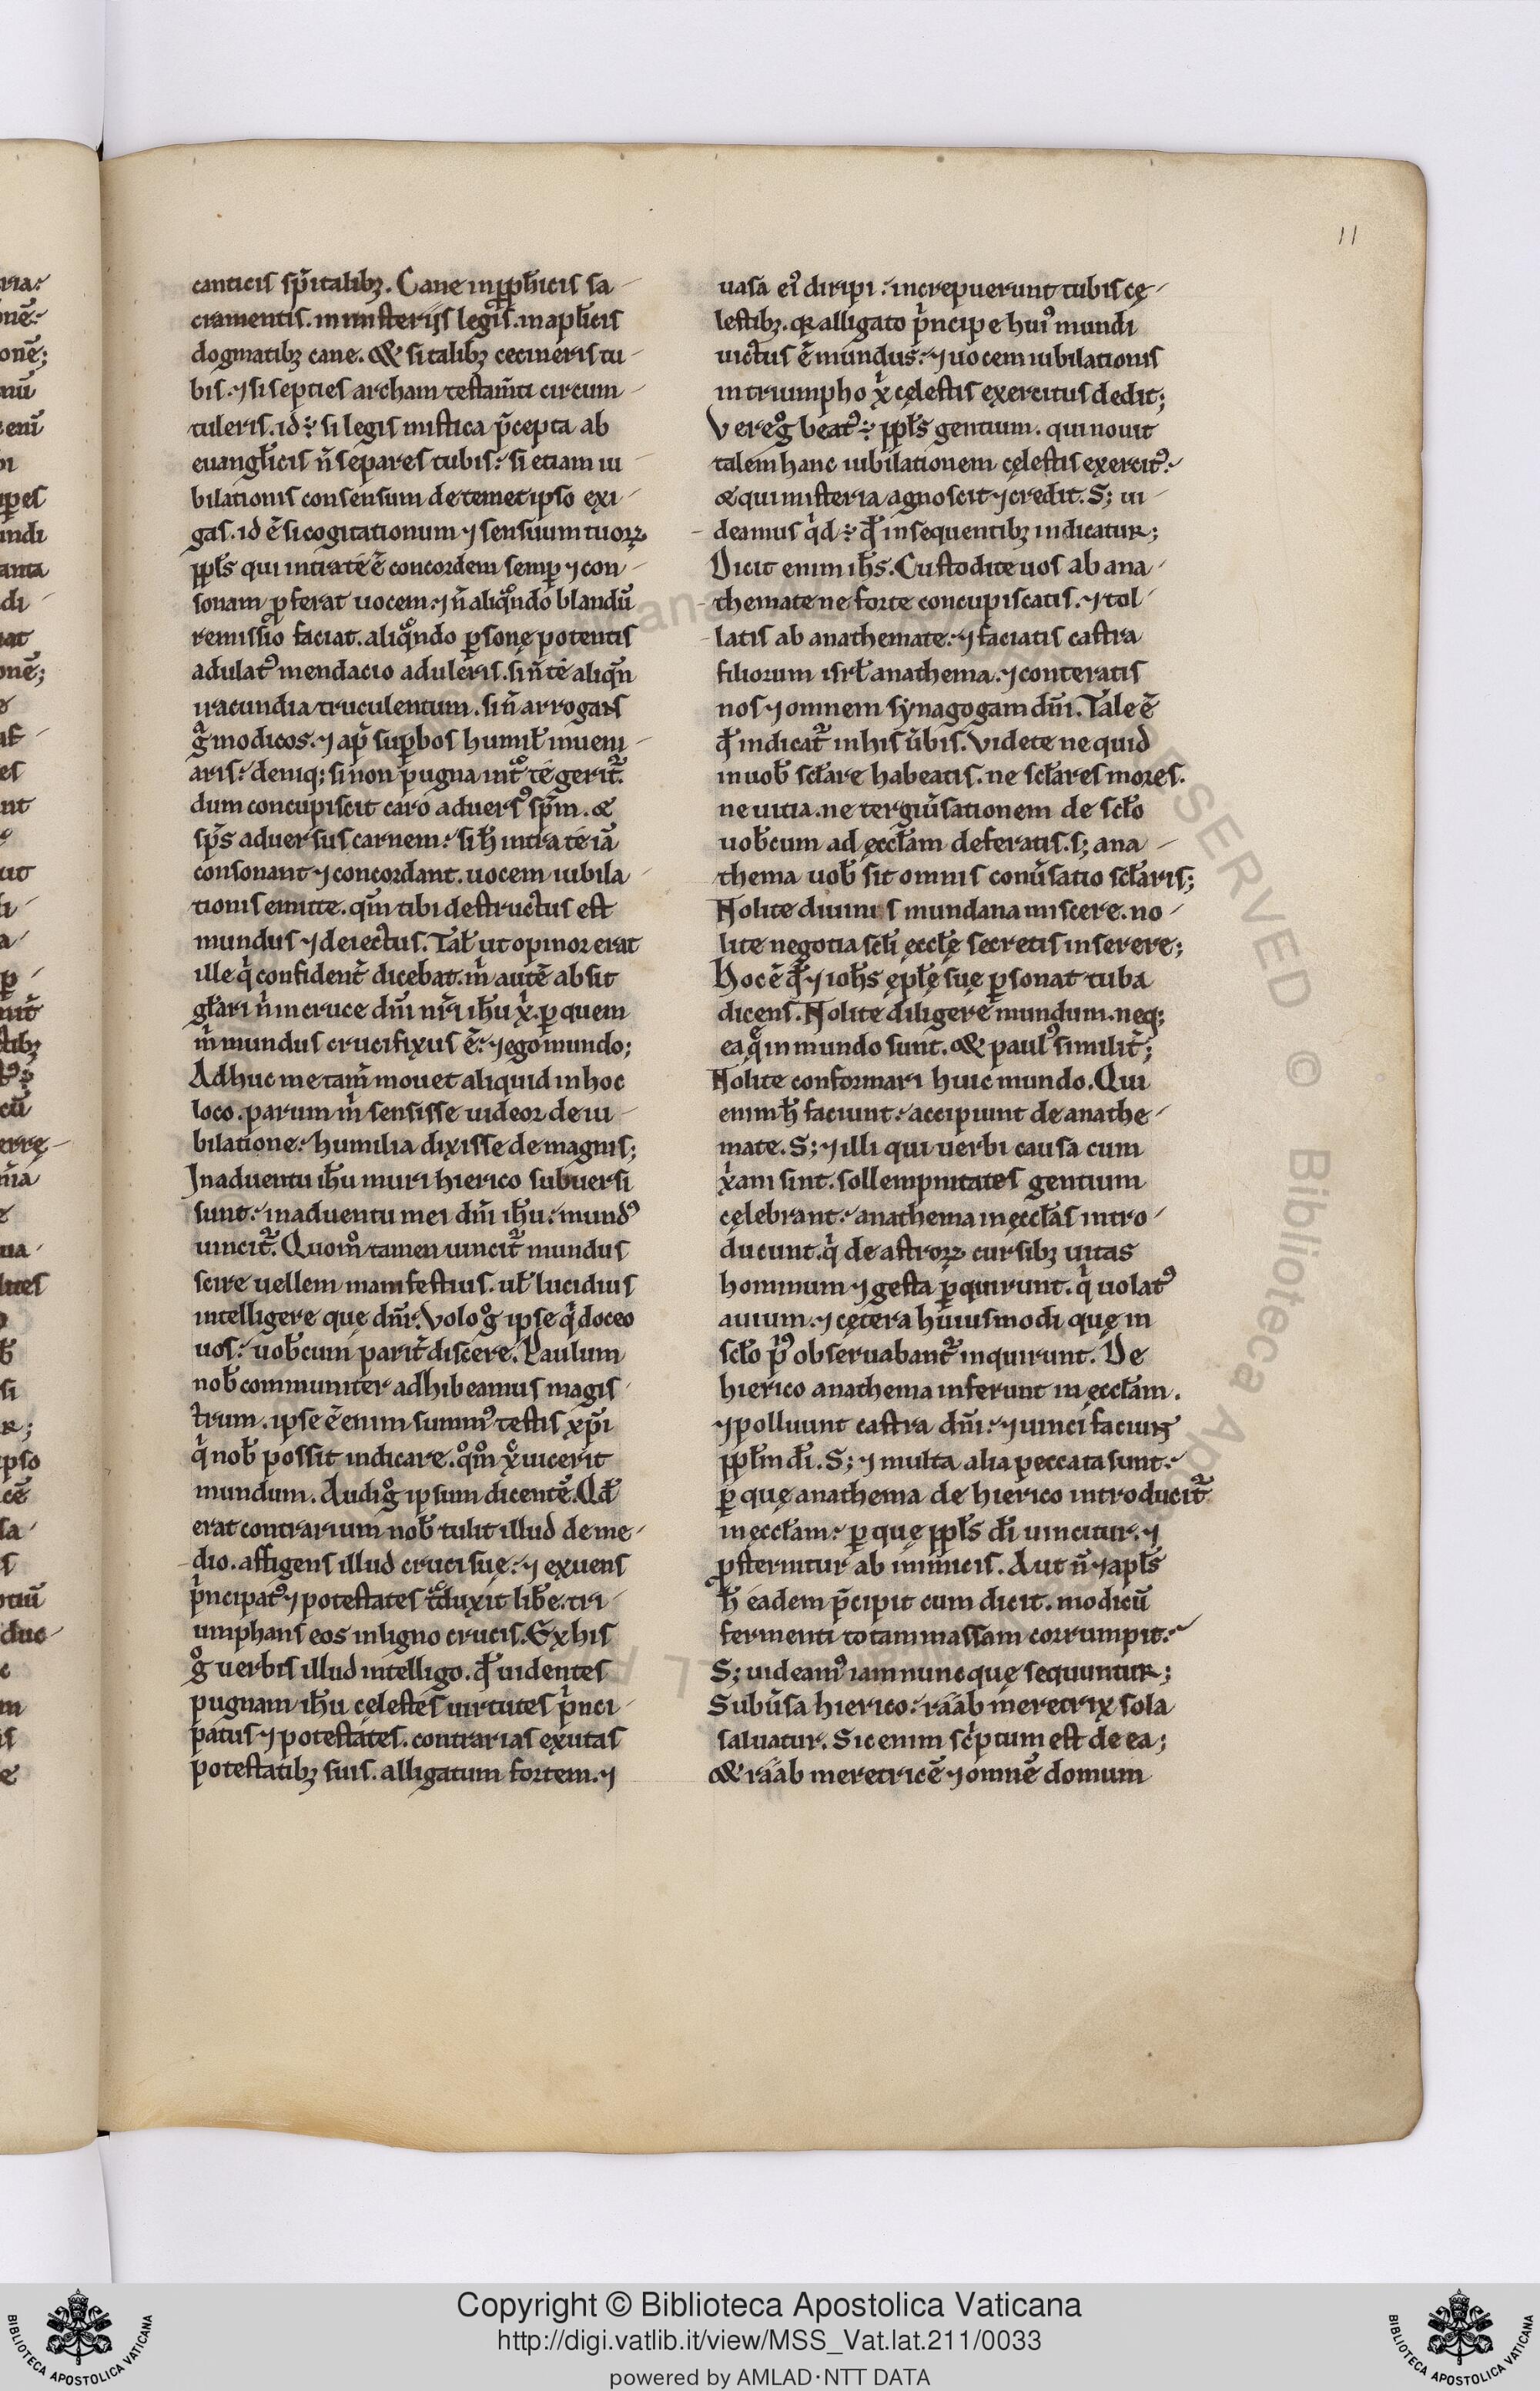 11
canticis sp̄italibꝫ. Cane in ꝓph̄icis sa-
cramentis. in misterijs legis. in apl̄icis
dogmatibꝫ cane. & si talibꝫ cecineris tu-
bis. ⁊ si septies archam testam̄ti circum-
tuleris. id ÷ si legis mistica p̄cepta ab
euangl̄icis n̄ separes tubis. si etiam iu-
bilationis consensum de temet ipso exi-
gas. id ē si cogitationum ⁊ sensuum tuoꝝ
ppl̄s qui intra te ē concordem semꝑ ⁊ con-
sonam ꝓferat uocem. ⁊ n̄ aliqͦndo blandū
remissio faciat. aliqͦndo ꝑsonę potentis
adulatꝰ mendacio aduleris. si n̄ te aliqn̄
iracundia truculentum. si n̄ arrogans
gͣ modicos. ⁊ ap̄ suꝑbos humil̄ inueni-
aris. deniq; si non pugna int̄ te gerit᷑.
dum concupiscit caro aduersꝰ sp̄m. &
sp̄s aduersus carnem. si h̄ intra te iā
consonant ⁊ concordant. uocem iubila-
tionis emitte. qm̄ tibi destructus est
mundus ⁊ deiectus. Tal̄ ut opinor erat
ille qͥ confident̄ dicebat. m̄ autē absit
gl̄ari n̄ in cruce dn̄i nr̄i ih̄u xͥ. ꝑ quem
m̄ mundus crucifixus ē. ⁊ ego mundo;
Adhuc me tam̄ mouet aliquid in hoc
loco. parum m̄ sensisse uideor de iu-
bilatione. humilia dixisse de magnis;
In aduentu ih̄u muri hierico subuersi
sunt. in aduentu mei dn̄i ih̄u. mundꝰ
uincit᷑. Quom̊ tamen uincit᷑ mundus
scire uellem manifestius. ul̄ lucidius
intelligere que dn̄r. Volo gͦ ipse qͥ doceo
uos. uob̄cum parit̄ discere. Paulum
nob̄ communiter adhibeamus magis-
trum. ipse ē enim summꝰ testis xp̄i
qͥ nob̄ possit indicare. qͦm̊ xͨ uicerit
mundum. Audi gͦ ipsum dicentē. Qd̄
erat contrarium nob̄ tulit illud de me-
dio. affigens illud cruci suę. ⁊ exuens
pͥncipatꝰ ⁊ potestates tͣduxit lib̄e. tri-
umphans eos in ligno crucis. Ex his
gͦ uerbis illud intelligo. qd̄ uidentes
pugnam ih̄u cęlestes uirtutes pͥnci-
patus ⁊ potestates. contrarias exutas
potestatibꝫ suis. alligatum fortem. ⁊
uasa eiꝰ diripi. increpuerunt tubis cę-
lestibꝫ. qꝛ alligato pͥncipe huiꝰ mundi
uictus ē mundus. ⁊ uocem iubilationis
in triumpho xͥ cęlestis exercitus dedit;
Vere gͦ beatꝰ ÷ ppl̄s gentium. qui nouit
talem hanc iubilationem cęlestis exercitꝰ.
& qui misteria agnoscit ⁊ credit. S; ui-
deamus qͥd ÷ qd̄ in sequentibꝫ indicatur;
Dicit enim ih̄s. Custodite uos ab ana-
themate ne forte concupiscatis. ⁊ tol-
latis ab anathemate. ⁊ faciatis castra
filiorum isrl̄ anathema. ⁊ conteratis
nos ⁊ omnem synagogam dn̄i. Tale ē
qd̄ indicat᷑ in his ūbis. Videte ne quid
in uob̄ scl̄are habeatis. ne scl̄ares mores.
ne uitia. ne tergiūsationem de scl̄o
uob̄cum ad ęccl̄am deferatis. s; ana-
thema uob̄ sit omnis conūsatio scl̄aris;
Nolite diuinis mundana miscere. no-
lite negotia scl̄i ęccl̄ę secretis inserere;
Hoc ē qd̄ ⁊ ioh̄s ępl̄ę suę ꝑsonat tuba
dicens. Nolite diligere mundum. neq;
ea qͤ in mundo sunt. & paulꝰ similit̄;
Nolite conformari huic mundo. Qui
enim h̄ faciunt. accipiunt de anathe-
mate. S; ⁊ illi qui uerbi causa cum
xͥani sint. sollempnitates gentium
cęlebrant. anathema in ęccl̄as intro-
ducunt. qͥ de astroꝝ cursibꝫ uitas
hominum ⁊ gesta ꝑquirunt. qͥ uolatꝰ
auium. ⁊ cętera huiusmodi quę in
scl̄o pͥꝰ obseruabant᷑ inquirunt. De
hierico anathema inferunt in ęccl̄am.
⁊ polluunt castra dn̄i. ⁊ uinci faciunt
ppl̄m dī. S; ⁊ multa alia peccata sunt.
ꝑ quę anathema de hierico introducit᷑
in ęccl̄am. ꝑ quę ppl̄s dī uincitur. ⁊
ꝓsternitur ab inimicis. Aut n̄ ⁊ apl̄s
h̄ eadem p̄cipit cum dicit. modicū
fermenti totam massam corrumpit.
S; uideamꝰ iam nunc quę sequuntur;
Subūsa hierico. raab meretrix sola
saluatur. Sic enim scͥptum est de ea;
& raab meretricē ⁊ omnē domum
Copyright © Biblioteca Apostolica Vaticana
http://digi.vatlib.it/view/MSS_Vat.lat.211/0033
powered by AMLAD·NTT DATA